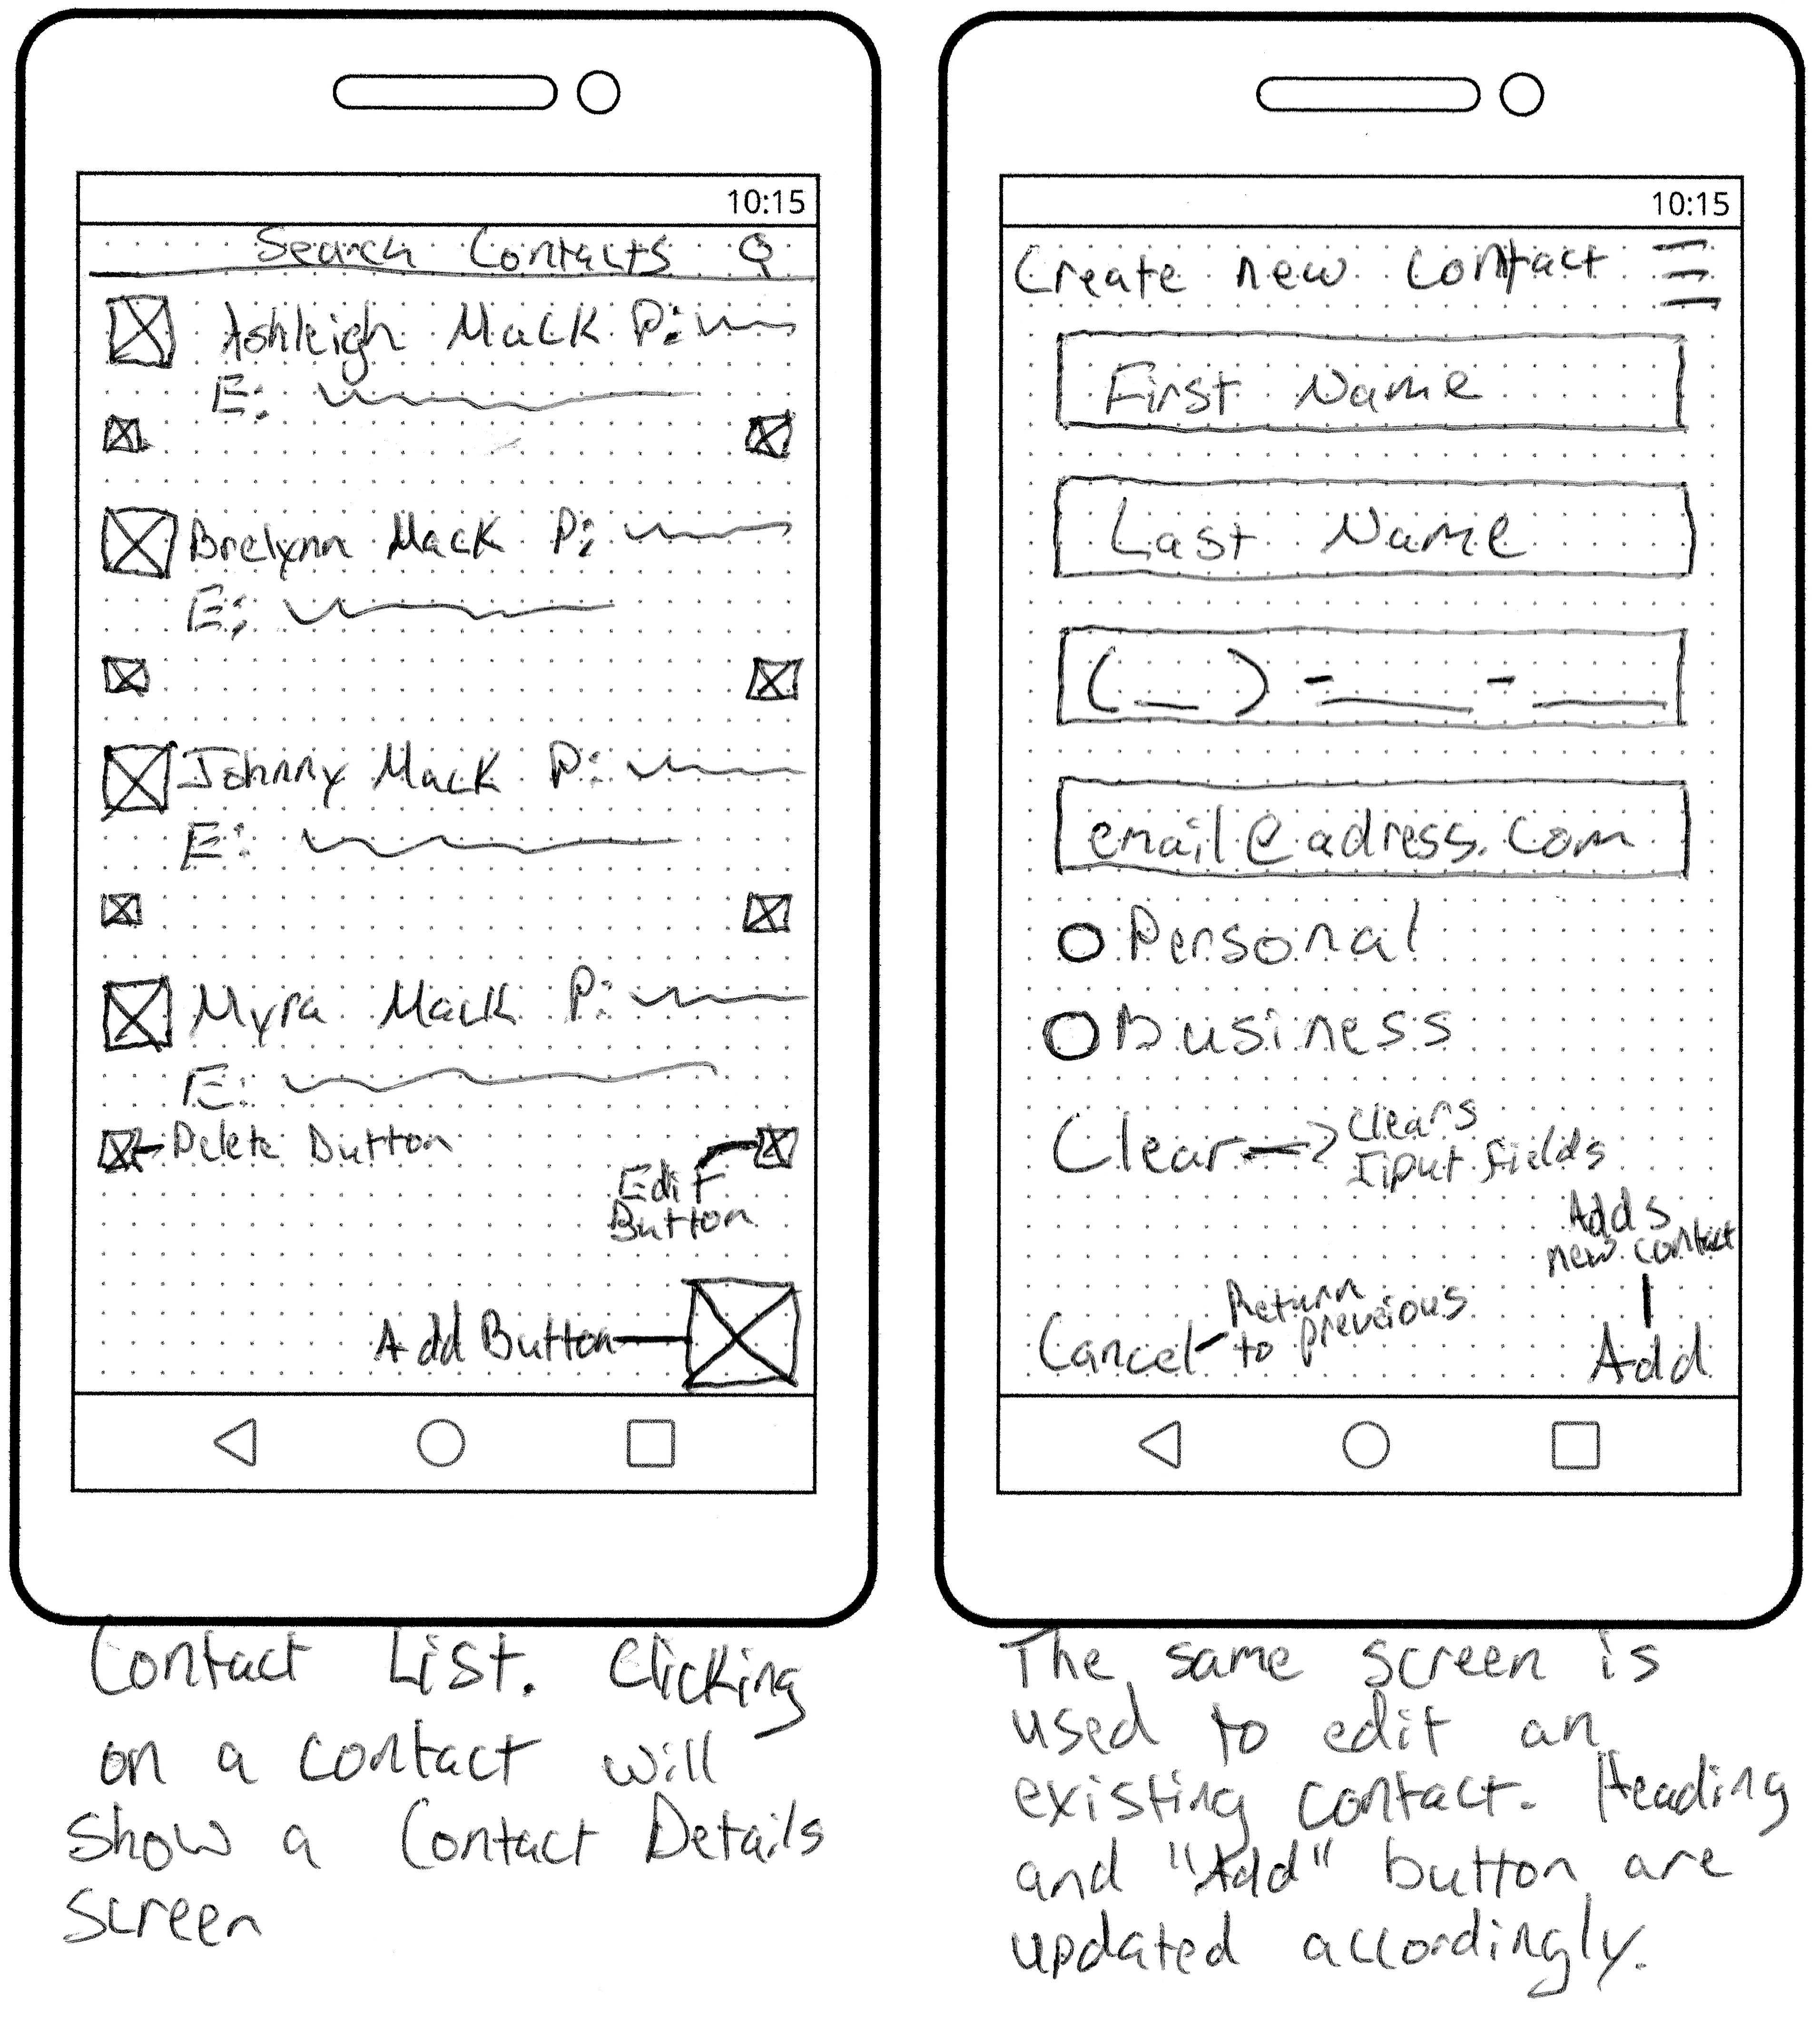 10:15
Search Contacts
Ashleigh Mack P:
E:
Brelynn Mack P:
E:
Johnny Mack P:
E:
Myra Mack P:
E:
Delete Button
Edit
Button
Add Button
Contact List. Clicking
on a contact will
show a Contact Details
screen
10:15
Create new contact
First Name
Last Name
( __ ) - ____ - ____
email@adress.com
Personal
Business
Clear → Clears
Input fields
Adds
new contact
Cancel - Return
to preveious
Add
The same screen is
used to edit an
existing contact. Heading
and "Add" button are
updated accordingly.